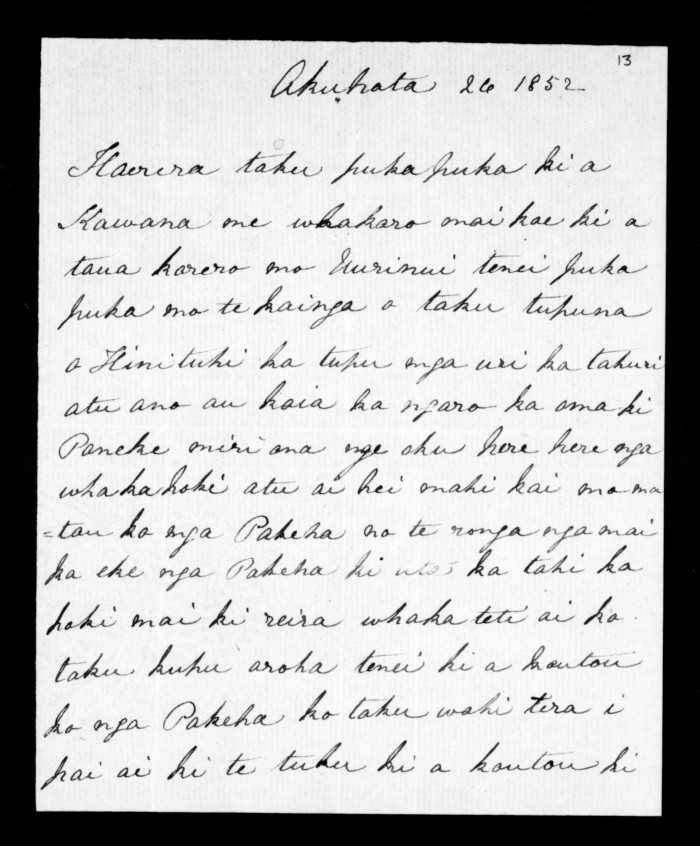 13
Akuhata 26 1852
Haerera taku pukapuka ki a
Kawana me whakaro mai koe ki a
taua korero mo Uurinui tenei puka
puka mo te kainga o taku tupuna
o Hinituhi ka tupu nga uri ka tahuri
atu ano au koia ka ngaro ka oma ki
Poneke miri ana nge oku here here nga
whaka hoki atu ai hei mahi kai mo ma
=tou ko nga Pakeha no te ronga nga mai
ka eke nga Pakeha ki uta ka tahi ka
hoki mai ki reira whaka teti ai ko
taku kupu aroha tenei ki a koutou
ko nga Pakeha ko taku wahi tera i
pai ai ki te tuku ki a koutou ki